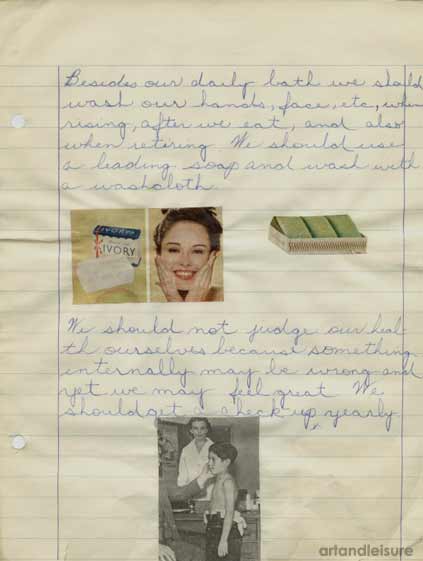 Besides our daily bath we should
wash our hands, face, etc, when
rising, after we eat, and also
when retiring. We should use
a leading soap and wash with
a washcloth.
IVORY
IVORY
We should not judge our heal-
th ourselves because something
internally may be wrong and
yet we may feel great. We
should get a check-up yearly.
artandleisure